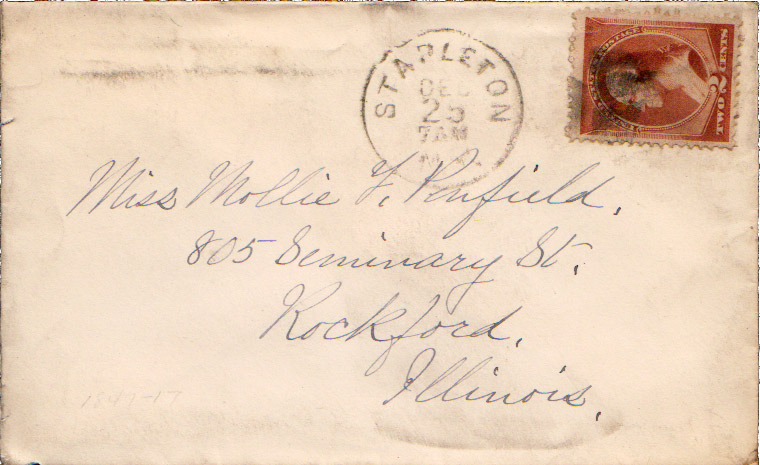 STAPLETON
DEC
25
7AM
N.Y.
POSTAGE
TWO 2 CENTS
Miss Mollie F. Penfield,
805 Seminary St.
Rockford,
Illinois,